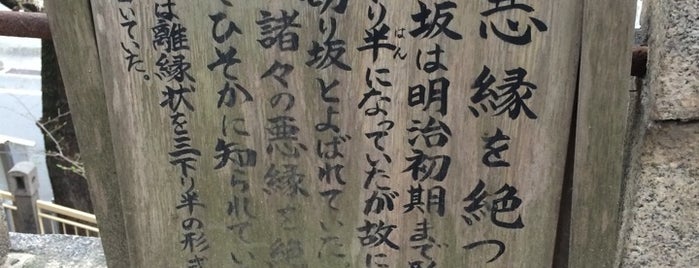 悪縁を絶つ
坂は明治初期まで
り半になっていたが故に
はん
切り坂とよばれていた
諸々の悪縁を
でひそかに知られてい
は離縁状を三下り半の形
いていた。